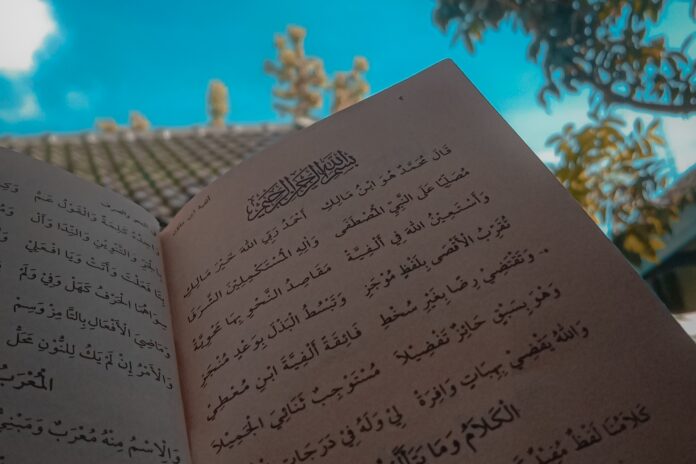 ٢
ألفية ابن مالك
بِسْمِ اللهِ الرَّحْمٰنِ الرَّحِيمِ
قَالَ مُحَمَّدٌ هُوَ ابْنُ مَالِكِ أَحْمَدُ رَبِّي اللهَ خَيْرَ مَالِكِ
مُصَلِّيًا عَلَى النَّبِيِّ الْمُصْطَفَى وَآلِهِ الْمُسْتَكْمِلِينَ الشَّرَفَا
وَأَسْتَعِينُ اللهَ فِي أَلْفِيَّةْ مَقَاصِدُ النَّحْوِ بِهَا مَحْوِيَّةْ
تُقَرِّبُ الْأَقْصَى بِلَفْظٍ مُوْجَزِ وَتَبْسُطُ الْبَذْلَ بِوَعْدٍ مُنْجَزِ
وَتَقْتَضِيْ رِضًا بِغَيْرِ سُخْطِ فَائِقَةً أَلْفِيَّةَ ابْنِ مُعْطِيْ
وَهْوَ بِسَبْقٍ حَائِزٌ تَفْضِيْلًا مُسْتَوْجِبٌ ثَنَائِيَ الْجَمِيْلَا
وَاللهُ يَقْضِيْ بِهِبَاتٍ وَافِرَةْ لِيْ وَلَهُ فِيْ دَرَجَاتِ
الْكَلَامُ وَمَا يَتَأَلَّفُ
كَلَامُنَا لَفْظٌ مُفِيْدٌ
النحو والصرف
وَاحِدُهُ كَلِمَةٌ وَالْقَوْلُ عَمْ
بِالْجَرِّ وَالتَّنْوِيْنِ وَالنِّدَا وَأَلْ
بِتَا فَعَلْتَ وَأَتَتْ وَيَا افْعَلِيْ
سِوَاهُمَا الْحَرْفُ كَهَلْ وَفِيْ وَلَمْ
وَمَاضِيَ الْأَفْعَالِ بِالتَّا مِزْ وَسِمْ
وَالْأَمْرُ إِنْ لَمْ يَكُ لِلنُّوْنِ مَحَلْ
الْمُعْرَبُ
وَالْاِسْمُ مِنْهُ مُعْرَبٌ وَمَبْنِيْ